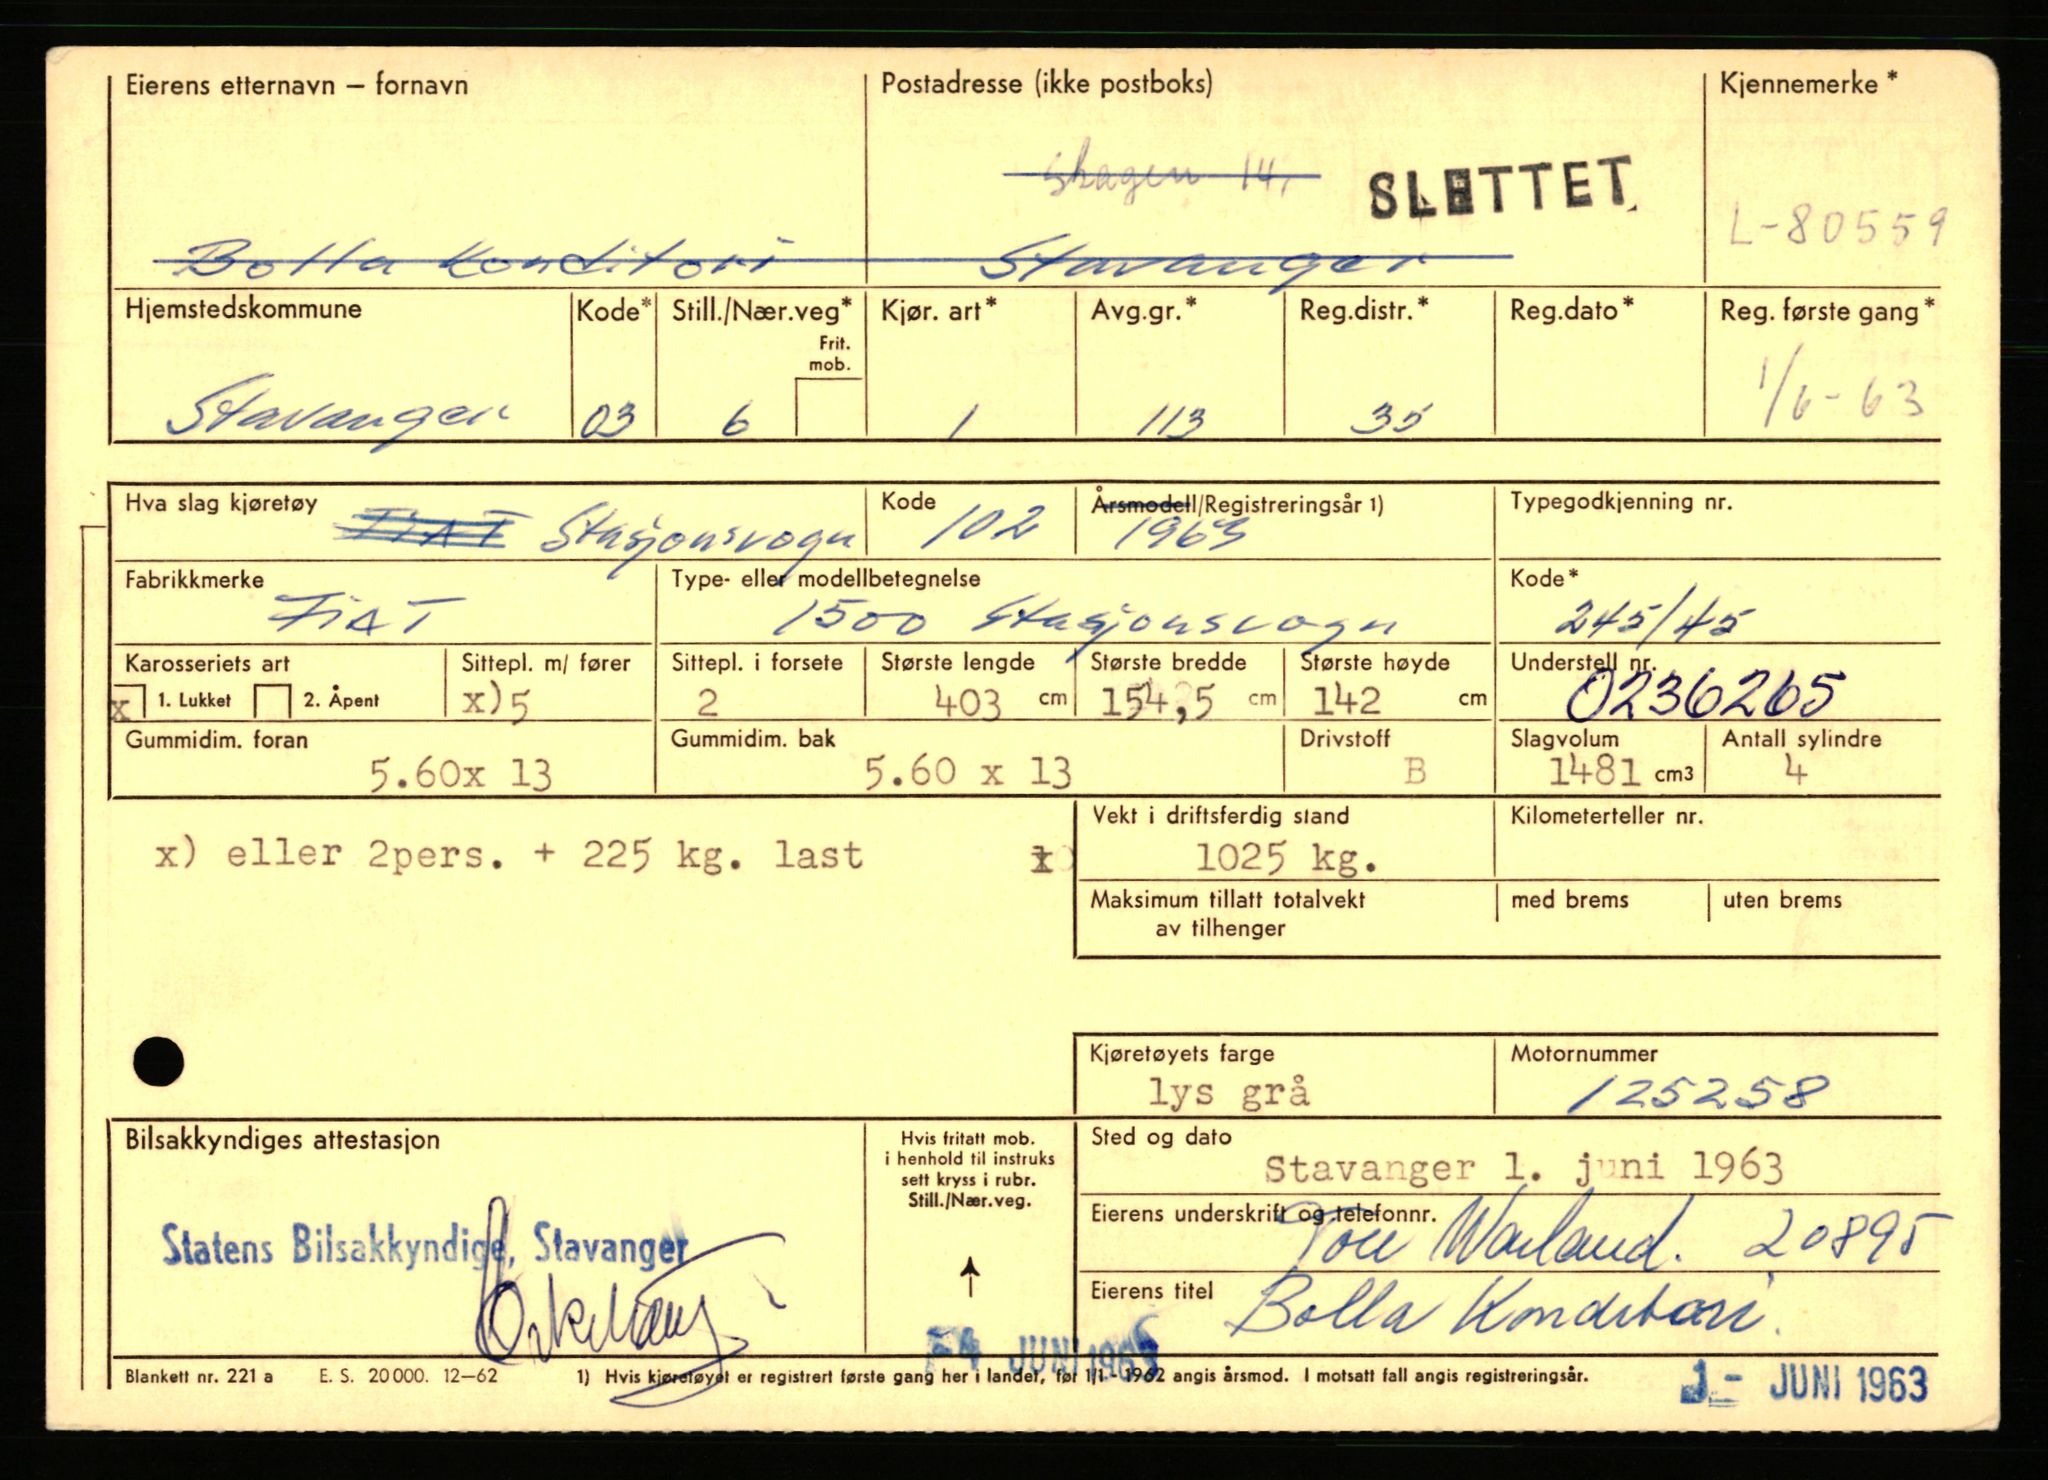 Eierens etternavn – fornavn Postadresse (ikke postboks) Kjennemerke*
Skagen 14, SLETTET
L-80559
Bolla Konditori Stavanger
Hjemstedskommune Kode* Still./Nær.veg* Kjør. art* Avg.gr.* Reg.distr.* Reg.dato* Reg. første gang*
Frit.
mob.
Stavanger 03 6 1 113 35 1/6-63
Hva slag kjøretøy Kode Årsmodell/Registreringsår 1) Typegodkjenning nr.
FIAT Stasjonsvogn 102 1963
Fabrikkmerke Type- eller modellbetegnelse Kode*
FIAT 1500 Stasjonsvogn 245/45
Karosseriets art Sittepl. m/ fører Sittepl. i forsete Største lengde Største bredde Største høyde Understell nr.
x 1. Lukket 2. Åpent x)5 2 403 cm 154,5 cm 142 cm 0236265
Gummidim. foran Gummidim. bak Drivstoff Slagvolum Antall sylindre
5.60x 13 5.60 x 13 B 1481 cm3 4
Vekt i driftsferdig stand Kilometerteller nr.
x) eller 2pers. + 225 kg. last 1025 kg.
Maksimum tillatt totalvekt med brems uten brems
av tilhenger
Kjøretøyets farge Motornummer
lys grå 125258
Bilsakkyndiges attestasjon Hvis fritatt mob. Sted og dato
i henhold til instruks
sett kryss i rubr.
Still./Nær.veg.
Stavanger 1. juni 1963
Eierens underskrift og telefonnr.
Statens Bilsakkyndige, Stavanger Tore Warland. 20895
Eierens titel
Bolla Konditori.
4 JUNI 1963
Blankett nr. 221 a E. S. 20 000. 12–62 1) Hvis kjøretøyet er registrert første gang her i landet, før 1/1 - 1962 angis årsmod. I motsatt fall angis registreringsår.
1- JUNI 1963